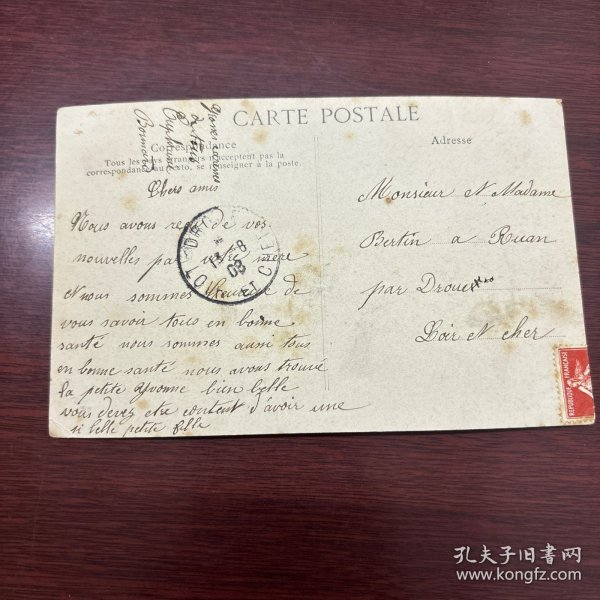 CARTE POSTALE
Correspondance
Tous les pays étrangers n'acceptent pas la
correspondance au recto, se renseigner à la poste.
Adresse
Chers amis
Nous avons reçu de vos
nouvelles par votre mère
et nous sommes heureux de
vous savoir tous en bonne
santé nous sommes aussi tous
en bonne santé nous avons trouvé
la petite Yvonne bien belle
vous devez etre content d'avoir une
si belle petite fille
Monsieur et Madame
Bertin a Ruan
par Droué
Loir et cher
13 -8
08
LOIR-ET-CHER
REPUBLIQUE FRANÇAISE
孔夫子旧书网
www.kongfz.com